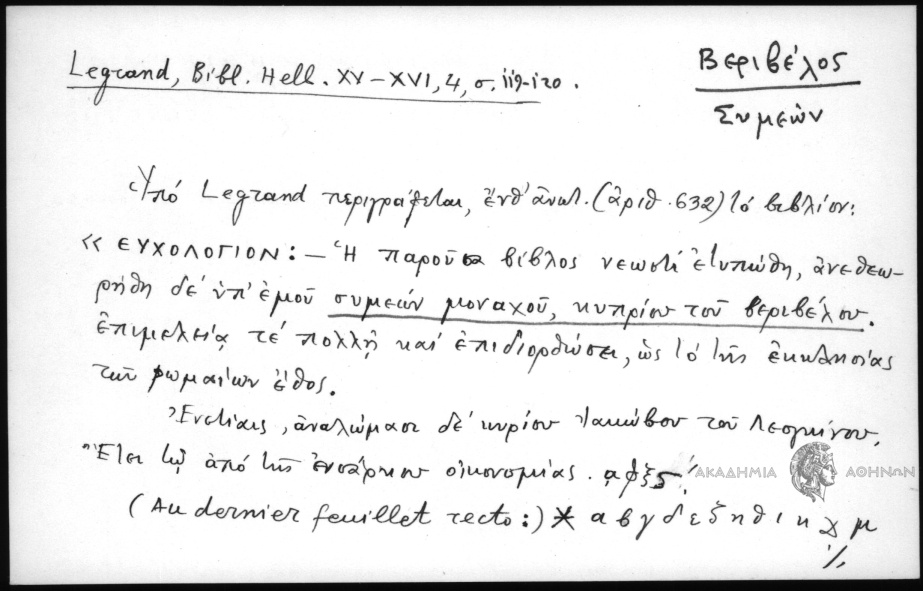 Legrand, Bibl. Hell. XV–XVI, 4, σ. 119-120.
Βεριβέλος
Συμεών
Ὑπό Legrand περιγράφεται, ἔνθ' ἀνωτ. (ἀριθ. 632) τό βιβλίον:
« ΕΥΧΟΛΟΓΙΟΝ: – Ἡ παροῦσα βίβλος νεωστί ἐτυπώθη, ἀνεθεω-
ρήθη δέ ὑπ' ἐμοῦ συμεών μοναχοῦ, κυπρίου τοῦ βεριβέλου.
ἐπιμελείᾳ τέ πολλῇ καί ἐπιδιορθώσει, ὡς τό τῆς ἐκκλησίας
τῶν ρωμαίων ἔθος.
Ἐνετίαις, ἀναλώμασι δέ κυρίου Ἰακώβου τοῦ Λεογκίνου.
Ἔτει τῷ ἀπό τῆς ἐνσάρκου οἰκονομίας. ᾳφξϛ'.
ΑΚΑΔΗΜΙΑ ΑΘΗΝΩΝ
(Au dernier feuillet recto:) * α β γ δ ε ζ η θ ι κ χ μ
./.